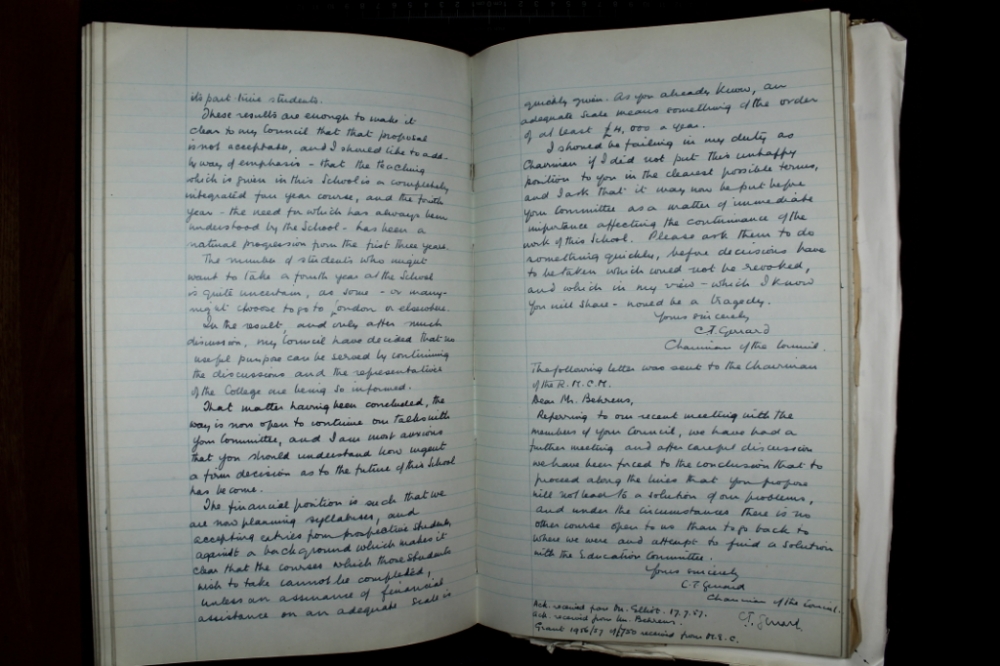 its part time students.
These results are enough to make it
clear to my Council that that proposal
is not acceptable, and I should like to add-
by way of emphasis - that the teaching
which is given in this School is a completely
integrated four year course, and the fourth
year - the need for which has always been
understood by the School - has been a
natural progression from the first three years.
The number of students who might
want to take a fourth year at the School
is quite uncertain, as some - or many-
might choose to go to London or elsewhere.
In the result, and only after much
discussion, my Council have decided that no
useful purpose can be served by continuing
the discussions and the representatives
of the College are being so informed.
That matter having been concluded, the
way is now open to continue our talks with
your Committee, and I am most anxious
that you should understand how urgent
a firm decision as to the future of this School
has become.
The financial position is such that we
are now planning syllabuses, and
accepting entries from prospective students
against a background which makes it
clear that the courses which those students
wish to take cannot be completed,
unless an assurance of financial
assistance on an adequate scale is
quickly given. As you already know, an
adequate scale means something of the order
of at least £4,000 a year.
I should be failing in my duty as
Chairman if I did not put this unhappy
position to you in the clearest possible terms,
and I ask that it may now be put before
your Committee as a matter of immediate
importance affecting the continuance of the
work of this School. Please ask them to do
something quickly, before decisions have
to be taken which could not be revoked,
and which in my view - which I know
you will share - would be a tragedy.
Yours sincerely
C.T. Gerrard
Chairman of the Council.
The following letter was sent to the Chairman
of the R.M.C.M.
Dear Mr. Behrens,
Referring to our recent meeting with the
members of your Council, we have had a
further meeting and after careful discussion
we have been forced to the conclusion that to
proceed along the lines that you propose
will not lead to a solution of our problems,
and under the circumstances there is no
other course open to us than to go back to
where we were and attempt to find a solution
with the Education Committee.
Yours sincerely
C.T. Gerrard
Chairman of the Council.
Ack. received from Dr. Elliot. 17.7.57.
Ack. received from Mr. Behrens.
Grant 1956/57 of £700 received from M.E.C.